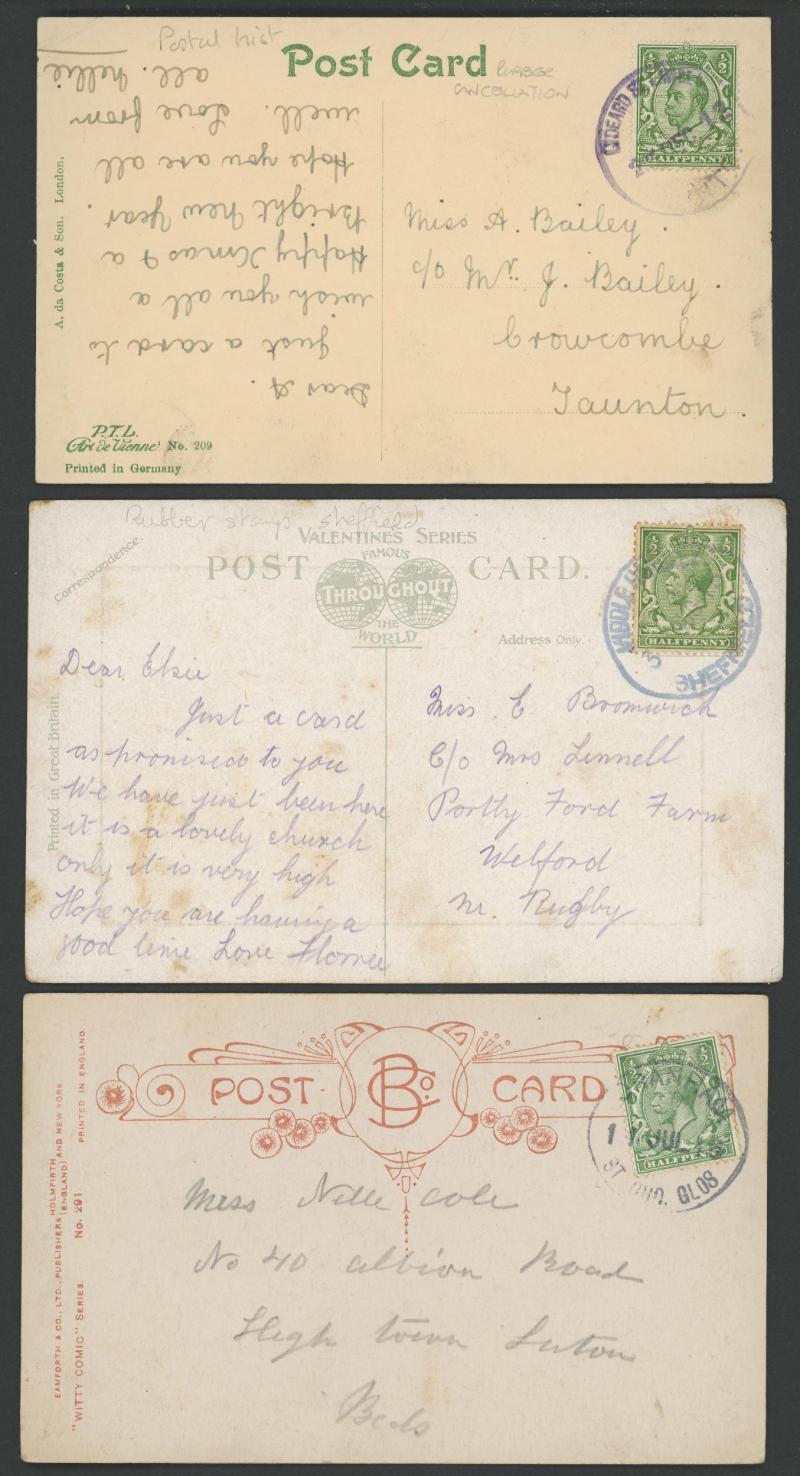 Postal hist
Post Card
CANCELLATION
½ ½
HALFPENNY
DEC 12
Dear A.
Just a card to
wish you all a
Happy Xmas & a
Bright New Year.
Hope you are all
well. Love from
all. Nellie
Miss A. Bailey.
c/o Mr. J. Bailey.
Crowcombe
Taunton.
A. da Costa & Son. London.
P.T.L.
Art de Vienne No. 209
Printed in Germany
Rubber stamps Sheffield
VALENTINES SERIES
POST CARD.
FAMOUS
THROUGHOUT
THE
WORLD
Correspondence.
Address Only.
½ ½
HALFPENNY
MIDDLE
SHEFFIELD
Printed in Great Britain.
Dear Elsie
Just a card
as promised to you
We have just been here
it is a lovely church
only it is very high
Hope you are having a
good time Love Florrie
Miss E Bromwich
C/o Mrs Linnell
Portly Ford Farm
Welford
nr. Rugby
POST CARD
B Co.
½ ½
HALFPENNY
JUL
GLOS
BAMFORTH & CO., LTD., PUBLISHERS HOLMFIRTH
(ENGLAND) AND NEW YORK
"WITTY COMIC" SERIES. No. 291. PRINTED IN ENGLAND.
Miss Nelle Cole
No 40 albion Road
High town Luton
Beds